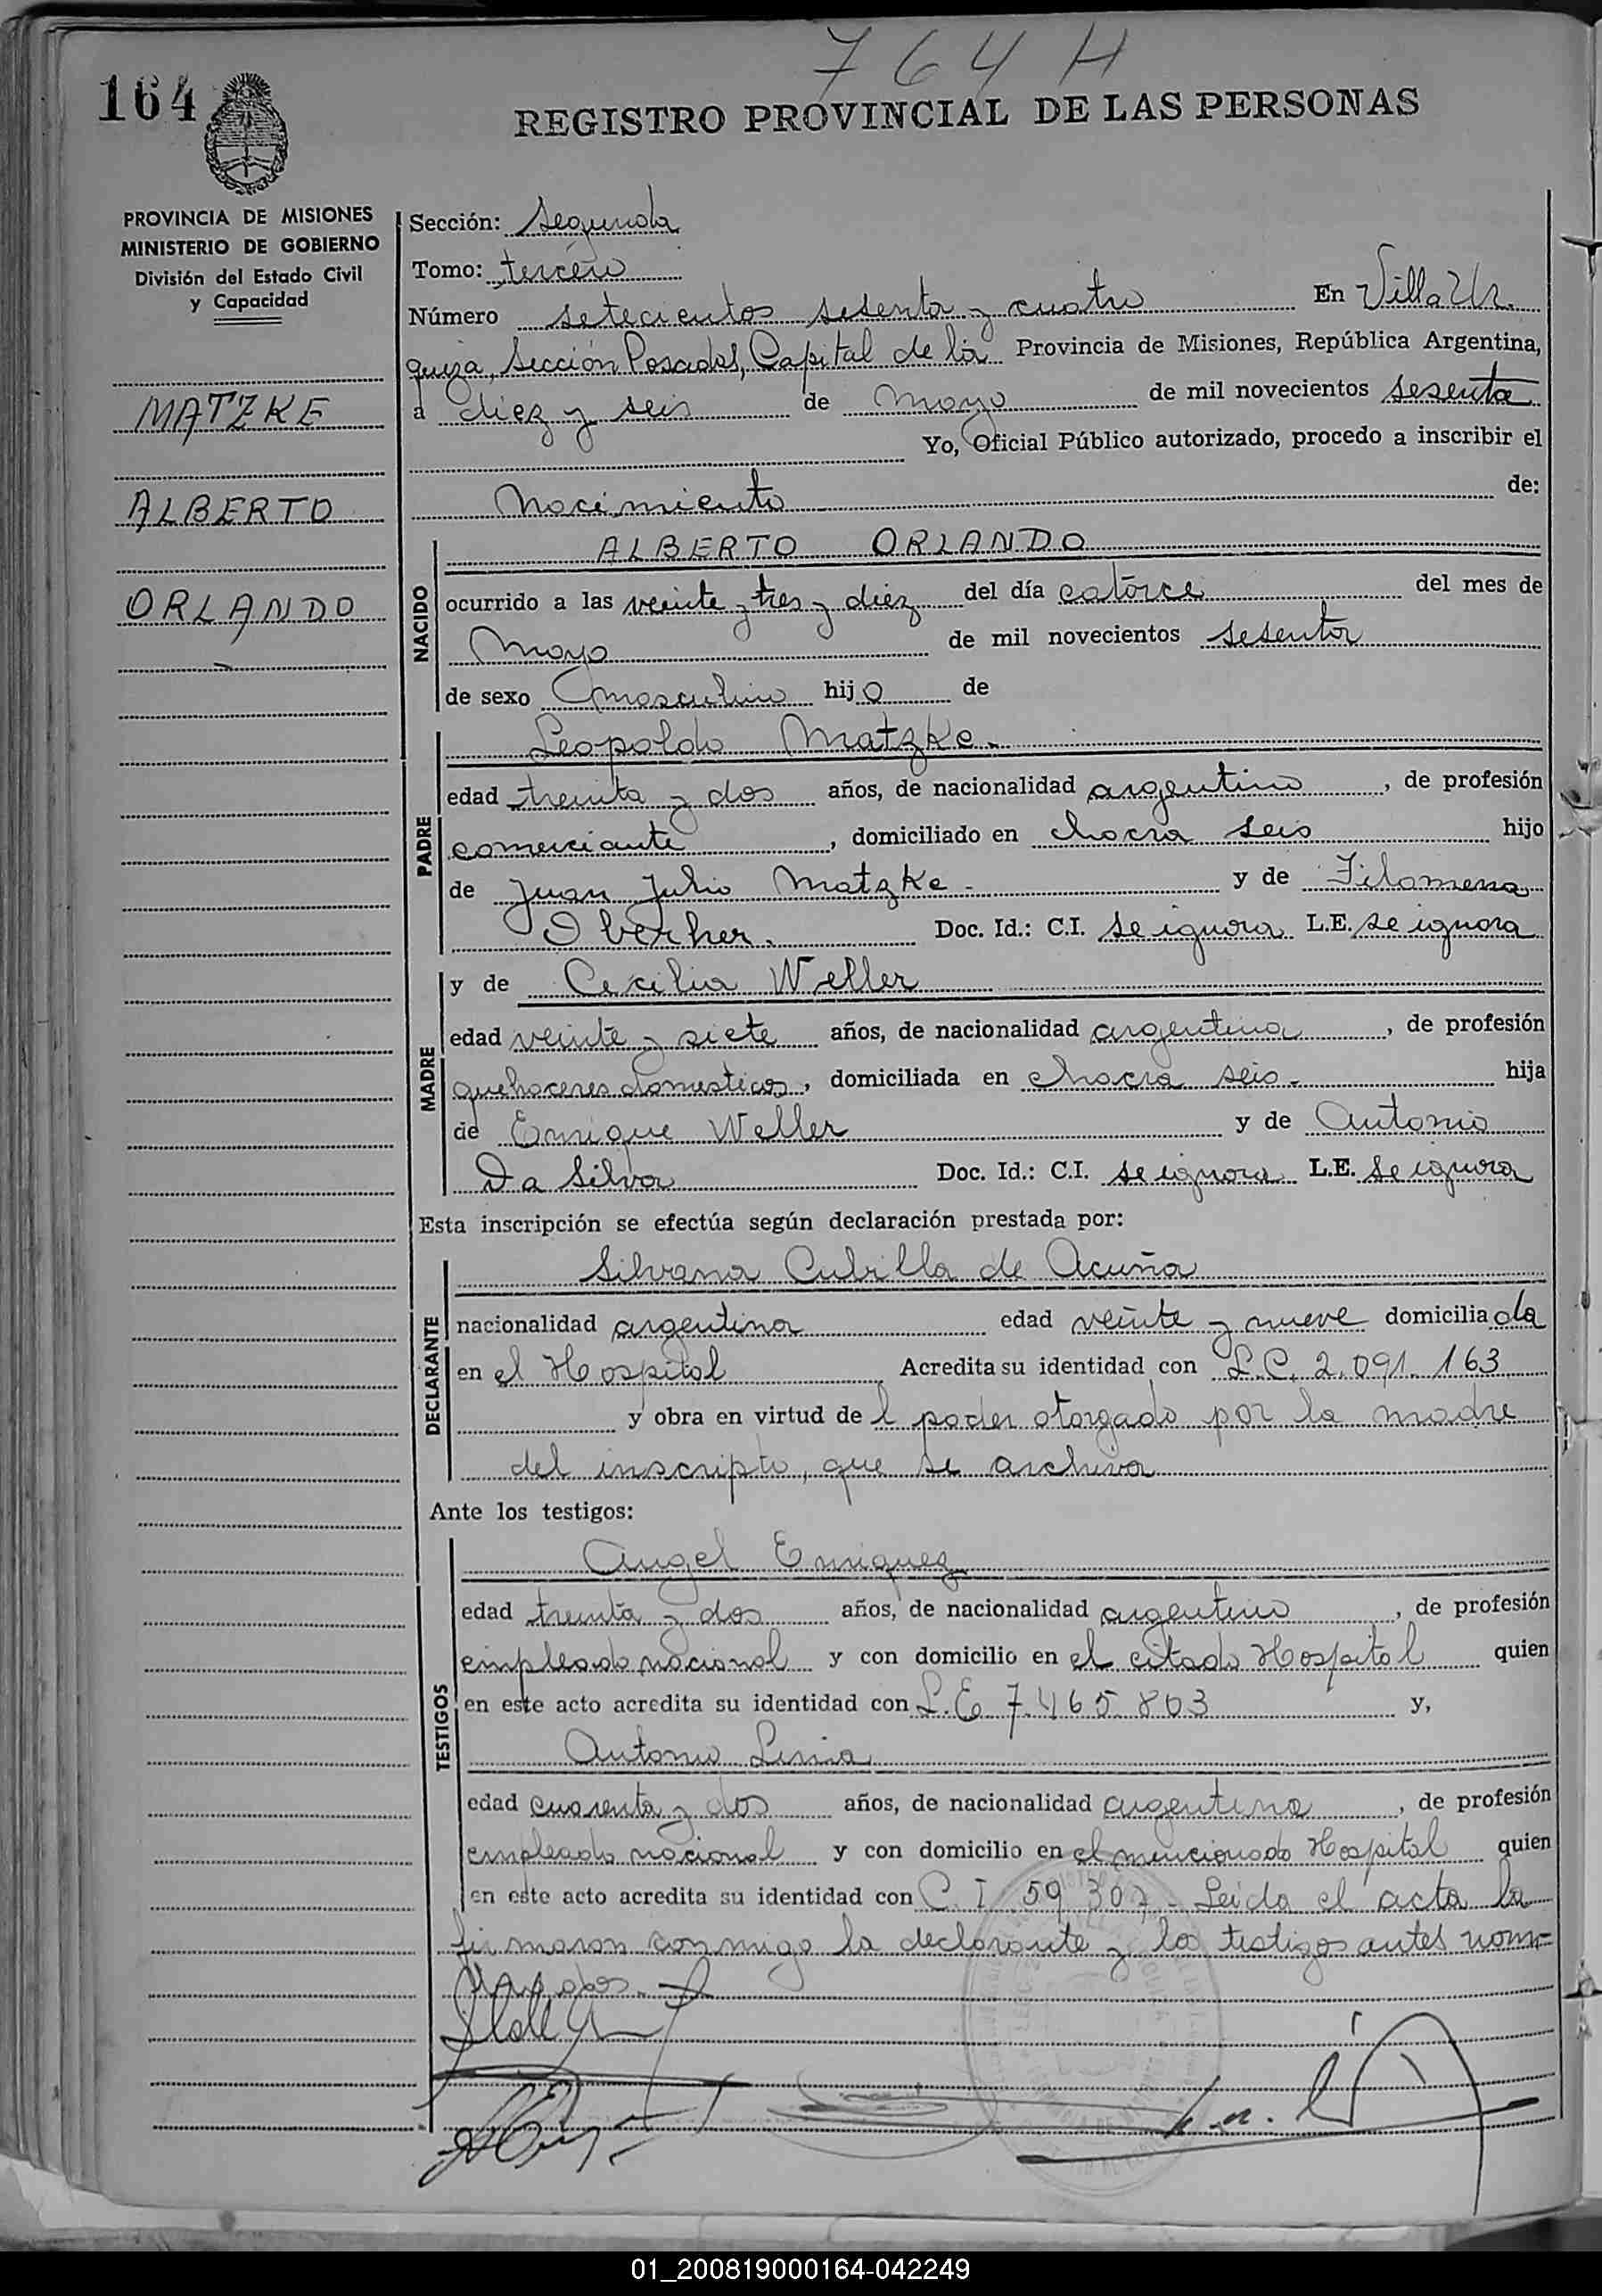 764 H
164
REGISTRO PROVINCIAL DE LAS PERSONAS
PROVINCIA DE MISIONES
MINISTERIO DE GOBIERNO
División del Estado Civil
y Capacidad
MATZKE
ALBERTO
ORLANDO
Sección: Segunda
Tomo: tercero
Número setecientos sesenta y cuatro En Villa Ur
quiza, Sección Posadas, Capital de la Provincia de Misiones, República Argentina,
a diez y seis de Mayo de mil novecientos sesenta
Yo, Oficial Público autorizado, procedo a inscribir el
Nacimiento de:
NACIDO
ALBERTO ORLANDO
ocurrido a las veinte y tres y diez del día catorce del mes de
Mayo de mil novecientos sesenta
de sexo masculino hijo de
PADRE
Leopoldo Matzke.
edad treinta y dos años, de nacionalidad argentino, de profesión
comerciante, domiciliado en chacra seis hijo
de Juan Julio Matzke - y de Filomena
Oberher. Doc. Id.: C.I. se ignora L.E. se ignora
MADRE
y de Cecilia Weller
edad veinte y siete años, de nacionalidad argentina, de profesión
quehaceres domesticos, domiciliada en chacra seis - hija
de Enrique Weller y de Antonia
Da Silva Doc. Id.: C.I. se ignora L.E. se ignora
Esta inscripción se efectúa según declaración prestada por:
DECLARANTE
Silvana Cubilla de Acuña
nacionalidad argentina edad veinte y nueve domiciliada
en el Hospital Acredita su identidad con L.C. 2.091.163
y obra en virtud del poder otorgado por la madre
del inscripto, que se archiva
Ante los testigos:
TESTIGOS
Angel Enriquez
edad treinta y dos años, de nacionalidad argentino, de profesión
empleado nacional y con domicilio en el citado Hospital quien
en este acto acredita su identidad con L.E 7.465.803 y,
Antonio
edad cuarenta y dos años, de nacionalidad argentina, de profesión
empleado nacional y con domicilio en el mencionado Hospital quien
en este acto acredita su identidad con C.I 59 307 - Leida el acta la
firmaron conmigo la declarante y los testigos antes nom-
brados.
01_200819000164-042249